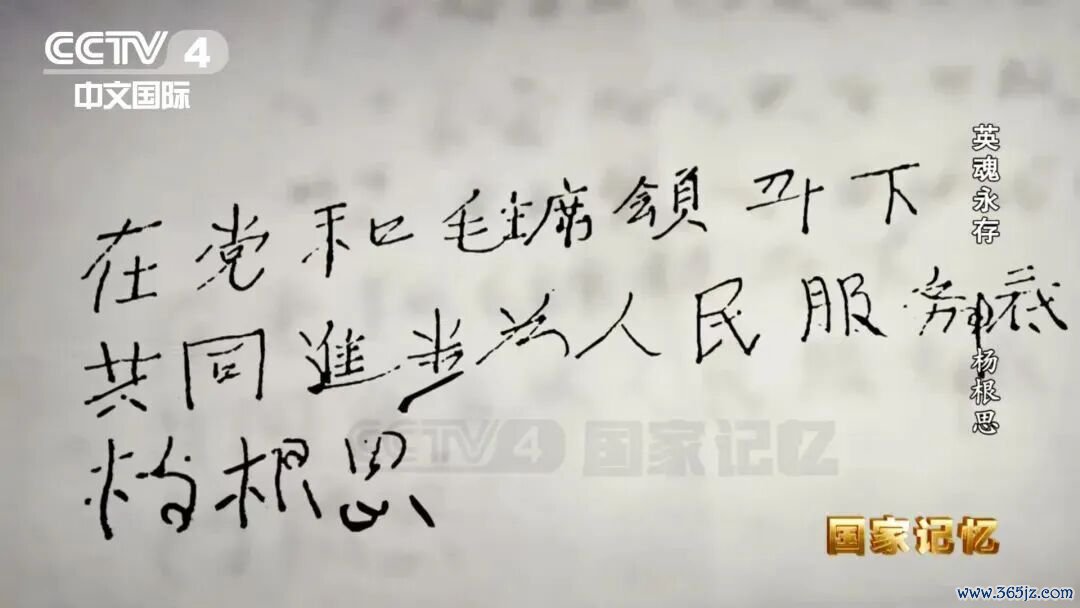 CCTV 4
中文国际
英魂永存 杨根思
在党和毛主席領叫下
共同進步为人民服务到底
杨根思
CCTV 4 国家记忆
国家记忆
www.365jz.com